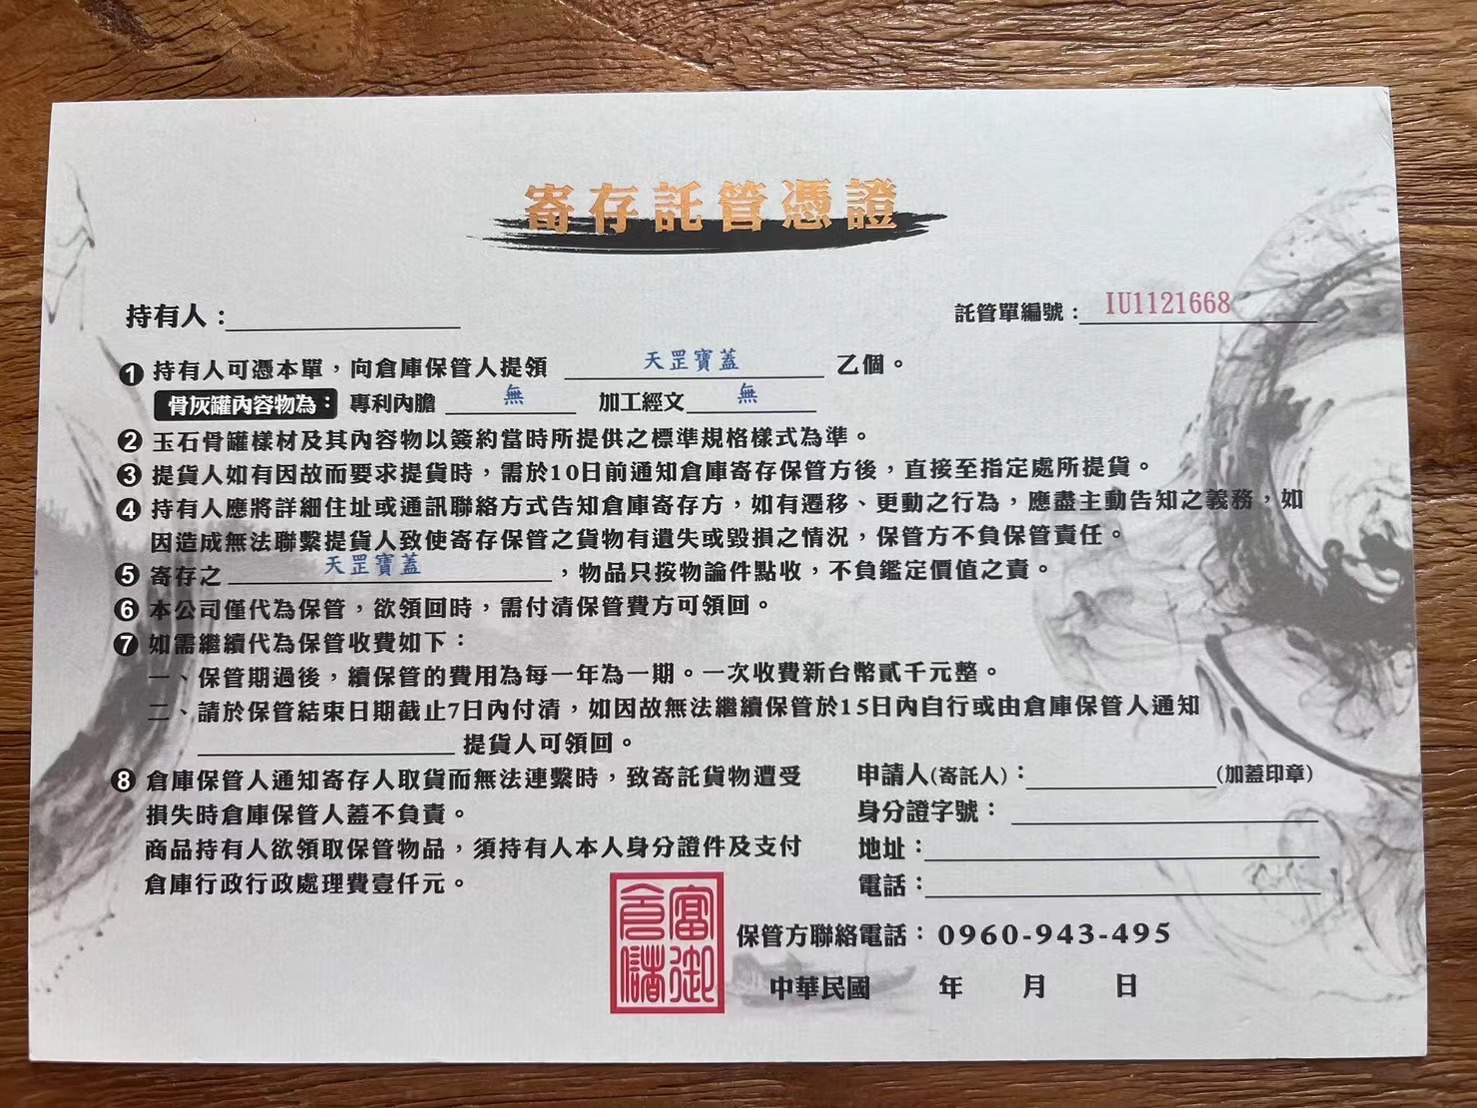 寄存託管憑證
持有人：
託管單編號：IU1121668
❶ 持有人可憑本單，向倉庫保管人提領 天罡寶蓋 乙個。
骨灰罐內容物為： 專利內膽 無 加工經文 無
❷ 玉石骨罐樣材及其內容物以簽約當時所提供之標準規格樣式為準。
❸ 提貨人如有因故而要求提貨時，需於10日前通知倉庫寄存保管方後，直接至指定處所提貨。
❹ 持有人應將詳細住址或通訊聯絡方式告知倉庫寄存方，如有遷移、更動之行為，應盡主動告知之義務，如
因造成無法聯繫提貨人致使寄存保管之貨物有遺失或毀損之情況，保管方不負保管責任。
❺ 寄存之 天罡寶蓋 ，物品只按物論件點收，不負鑑定價值之責。
❻ 本公司僅代為保管，欲領回時，需付清保管費方可領回。
❼ 如需繼續代為保管收費如下：
一、保管期過後，續保管的費用為每一年為一期。一次收費新台幣貳千元整。
二、請於保管結束日期截止7日內付清，如因故無法繼續保管於15日內自行或由倉庫保管人通知
提貨人可領回。
❽ 倉庫保管人通知寄存人取貨而無法連繫時，致寄託貨物遭受
損失時倉庫保管人蓋不負責。
商品持有人欲領取保管物品，須持有人本人身分證件及支付
倉庫行政行政處理費壹仟元。
申請人(寄託人)：(加蓋印章)
身分證字號：
地址：
電話：
富御倉儲
保管方聯絡電話：0960-943-495
中華民國 年 月 日